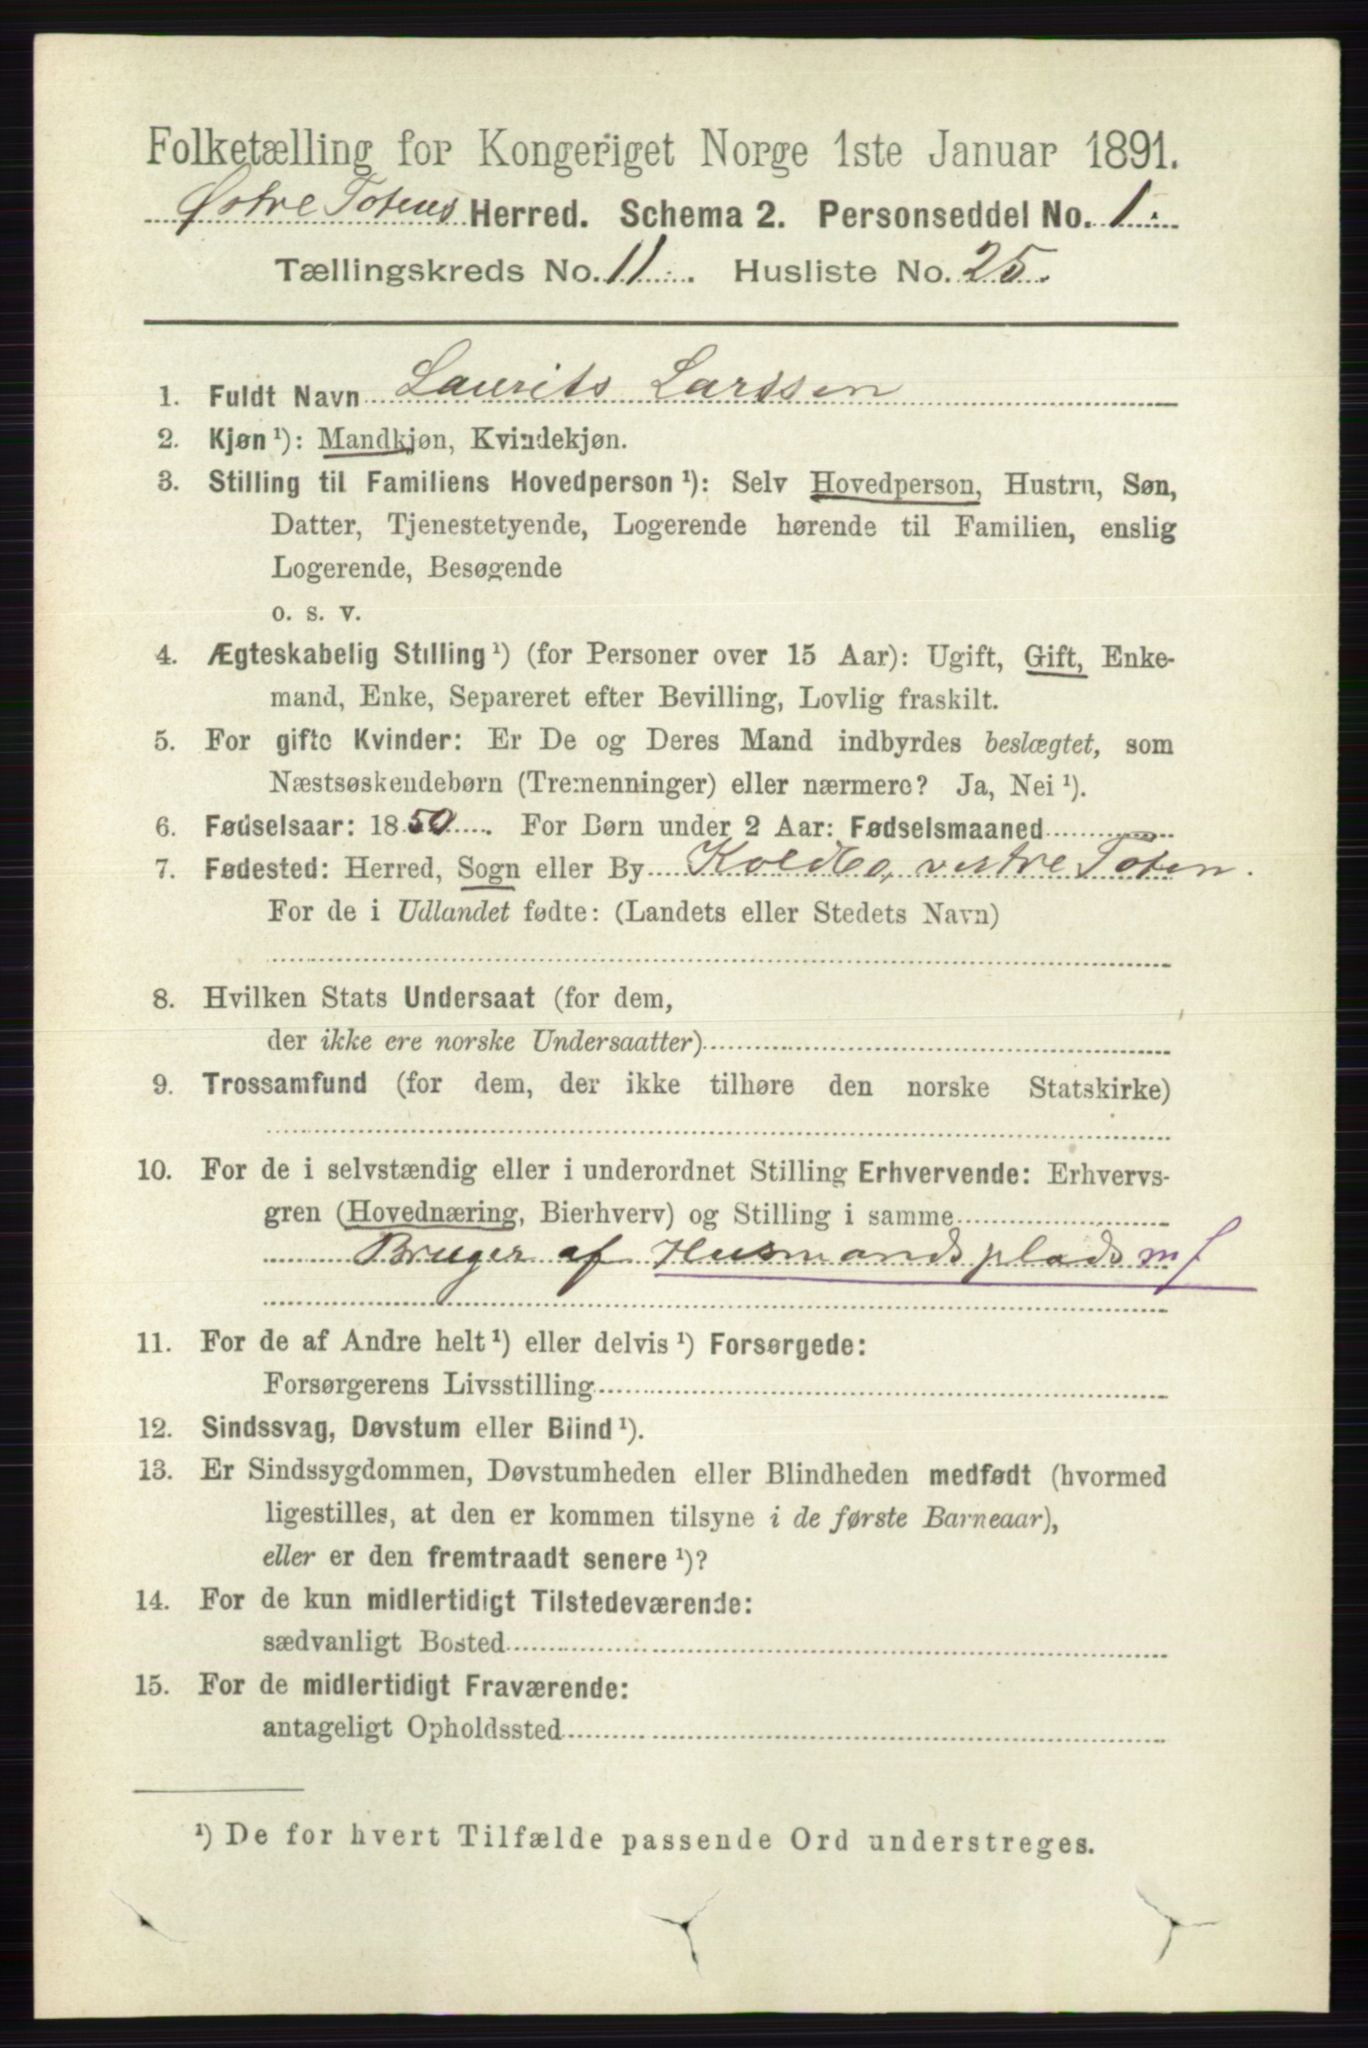 Folketælling for Kongeriget Norge 1ste Januar 1891.
Østre Totens Herred. Schema 2. Personseddel No. 1.
Tællingskreds No. 11. Husliste No. 25.
1. Fuldt Navn Laurits Larssen
2. Kjøn ¹): Mandkjøn, Kvindekjøn.
3. Stilling til Familiens Hovedperson ¹): Selv Hovedperson, Hustru, Søn,
Datter, Tjenestetyende, Logerende hørende til Familien, enslig
Logerende, Besøgende
o. s. v.
4. Ægteskabelig Stilling ¹) (for Personer over 15 Aar): Ugift, Gift, Enke-
mand, Enke, Separeret efter Bevilling, Lovlig fraskilt.
5. For gifte Kvinder: Er De og Deres Mand indbyrdes beslægtet, som
Næstsøskendebørn (Tremenninger) eller nærmere? Ja, Nei ¹).
6. Fødselsaar: 1850. For Børn under 2 Aar: Fødselsmaaned
7. Fødested: Herred, Sogn eller By Koldbo, vestre Toten.
For de i Udlandet fødte: (Landets eller Stedets Navn)
8. Hvilken Stats Undersaat (for dem,
der ikke ere norske Undersaatter)
9. Trossamfund (for dem, der ikke tilhøre den norske Statskirke)
10. For de i selvstændig eller i underordnet Stilling Erhvervende: Erhvervs-
gren (Hovednæring, Bierhverv) og Stilling i samme
Bruger af Husmandsplads m f
11. For de af Andre helt ¹) eller delvis ¹) Forsørgede:
Forsørgerens Livsstilling
12. Sindssvag, Døvstum eller Blind ¹).
13. Er Sindssygdommen, Døvstumheden eller Blindheden medfødt (hvormed
ligestilles, at den er kommen tilsyne i de første Barneaar),
eller er den fremtraadt senere ¹)?
14. For de kun midlertidigt Tilstedeværende:
sædvanligt Bosted
15. For de midlertidigt Fraværende:
antageligt Opholdssted
¹) De for hvert Tilfælde passende Ord understreges.